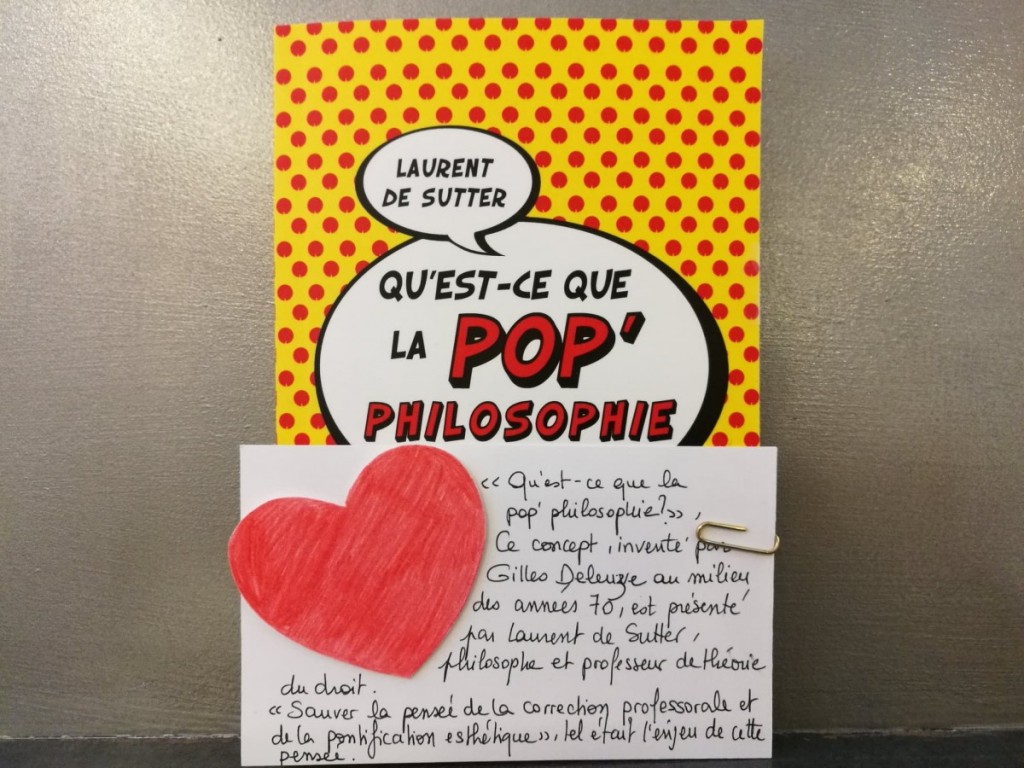 LAURENT
DE SUTTER
QU'EST-CE QUE
LA POP'
PHILOSOPHIE
« Qu'est-ce que la
pop' philosophie? »,
Ce concept, inventé par
Gilles Deleuze au milieu
des années 70, est présenté
par Laurent de Sutter,
philosophe et professeur de théorie
du droit.
« Sauver la pensée de la correction professorale et
de la pontification esthétique », tel était l'enjeu de cette
pensée.